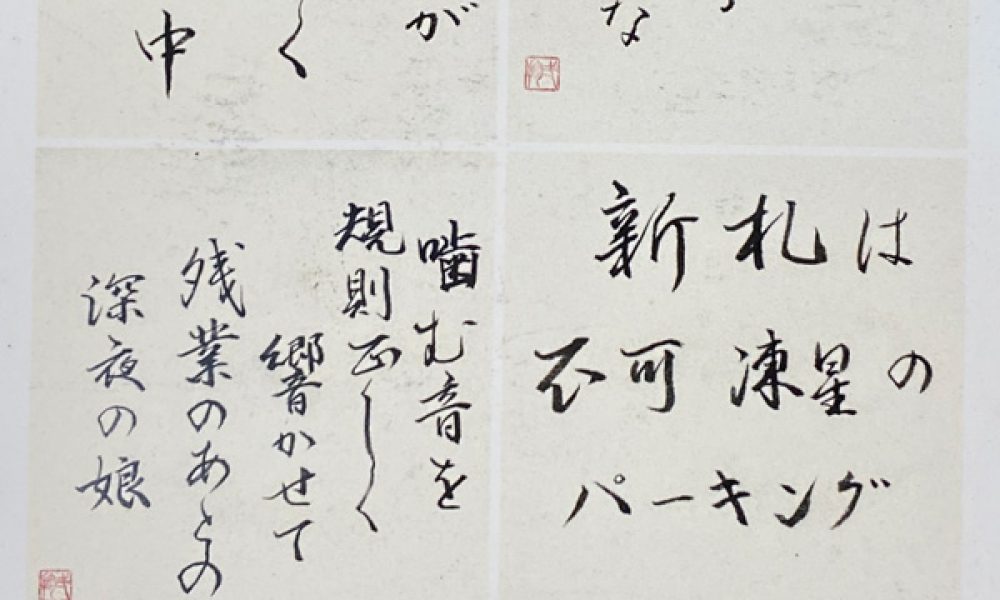 な
が
く
中
新札は
不可 凍星の
パーキング
噛む音を
規則正しく
響かせて
残業のあとの
深夜の娘